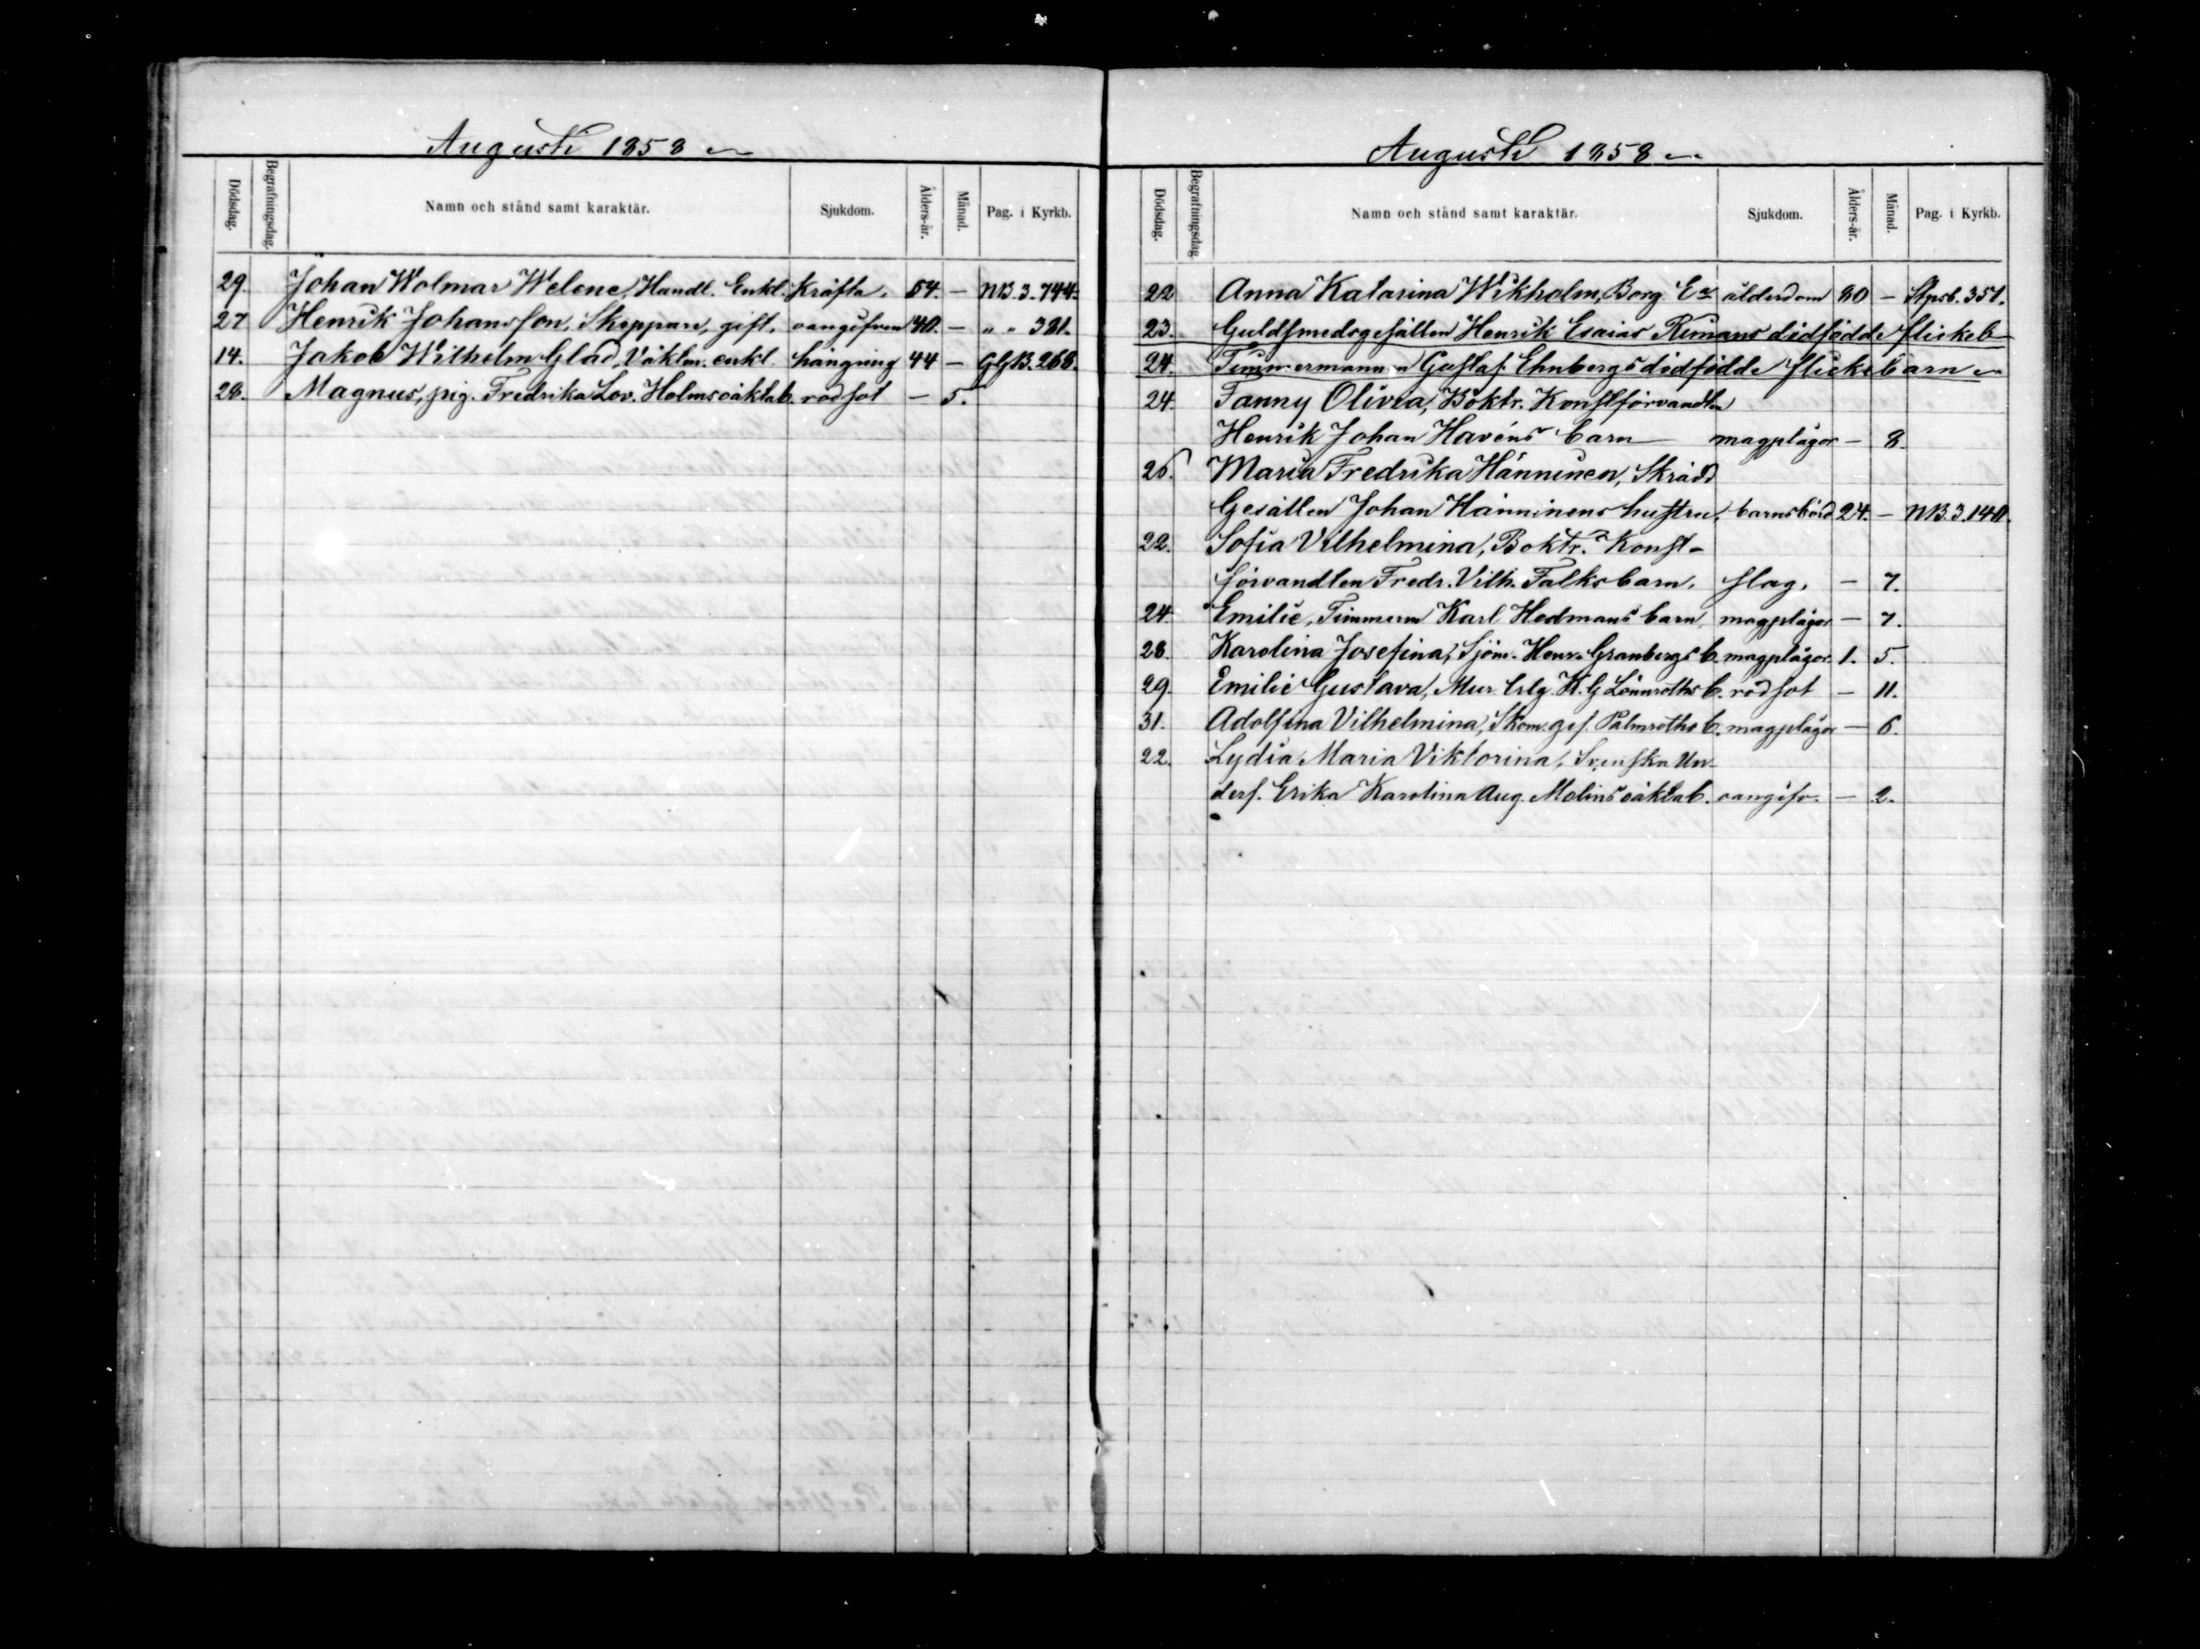 Augusti 1858
Dödsdag. Begrafningsdag. Namn och stånd samt karaktär. Sjukdom. Ålders-år. Månad. Pag. i Kyrkb.
29. Johan Wolmar Welene, Handl. Enkl. Kräfta. 54. — NB. 3. 744.
27 Henrik Johansson, Skeppare, gift. oangifven 40. — „ „ 381.
14. Jakob Wilhelm Glad, Väktm. enkl. hängning 44 — GGB. 268.
28. Magnus, pig. Fredrika Lov. Holms oäkta b. rödsot — 5.
Augusti 1858
Dödsdag. Begrafningsdag. Namn och stånd samt karaktär. Sjukdom. Ålders-år. Månad. Pag. i Kyrkb.
22 Anna Katarina Wikholm, Borg. Ea ålderdom 80 — 351.
23. Guldsmedsgesällen Henrik Esaias Rimans dödfödde flickeb
24. Timmermannen Gustaf Ehnbergs dödfödde flickebarn
24. Fanny Olivia, Boktr. Konstförvandten
Henrik Johan Havéns barn magplågor — 8.
25. Maria Fredrika Hänninen, Skrädd
Gesällen Johan Hänninens hustru, barnsbörd 24. — NB. 3. 140.
22. Sofia Vilhelmina, Boktr. Konst-
förvandten Fredr. Vilh. Falks barn. slag. — 7.
24. Emilie, Timmerm Karl Hedmans barn, magplågor — 7.
28. Karolina Josefina, Sjöm. Henr. Granbergs b. magplågor. 1. 5.
29. Emilie Gustava, Mur. lrlg. K. G Lönnroths b. rödsot — 11.
31. Adolfina Vilhelmina, Skom. ges. Palmroths b. magplågor — 6.
22. Lydia Maria Viktorina, Svenska Un-
ders. Erika Karolina Aug. Molins oäkta b. oangifv. — 2.